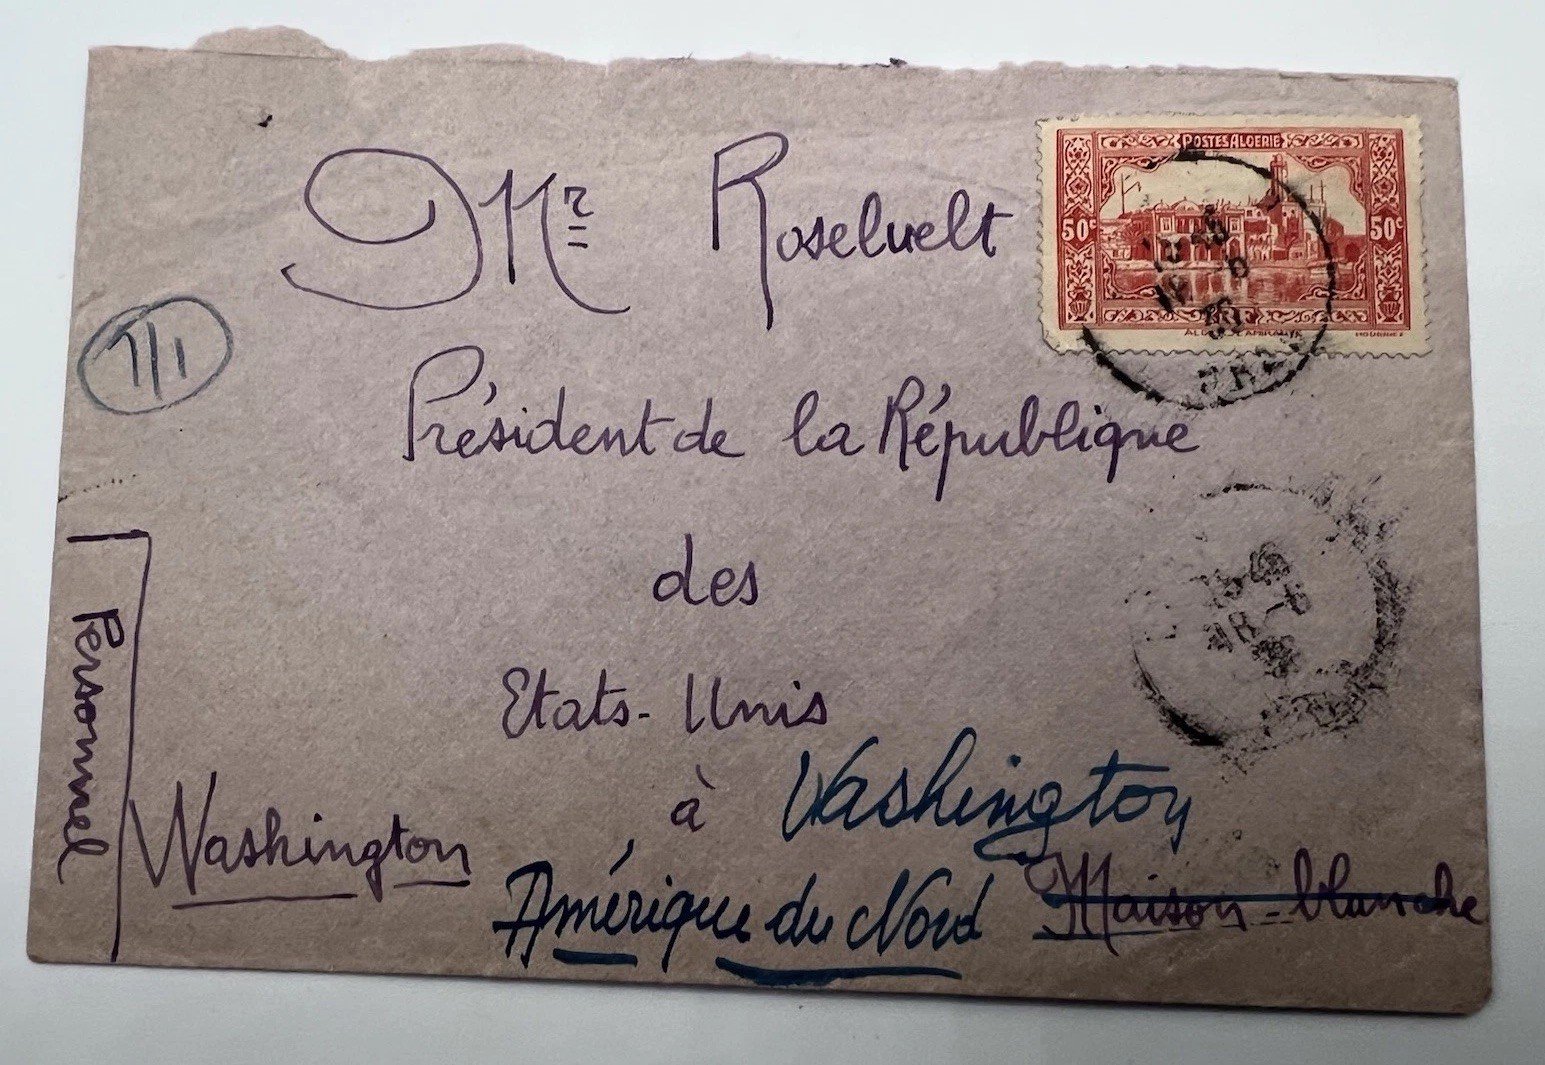 Mr Roselvelt
POSTES ALGERIE
50c 50c
T/1
Président de la République
des
Etats-Unis
à Washington
Personnel
Washington
Maison-blanche
Amérique du Nord